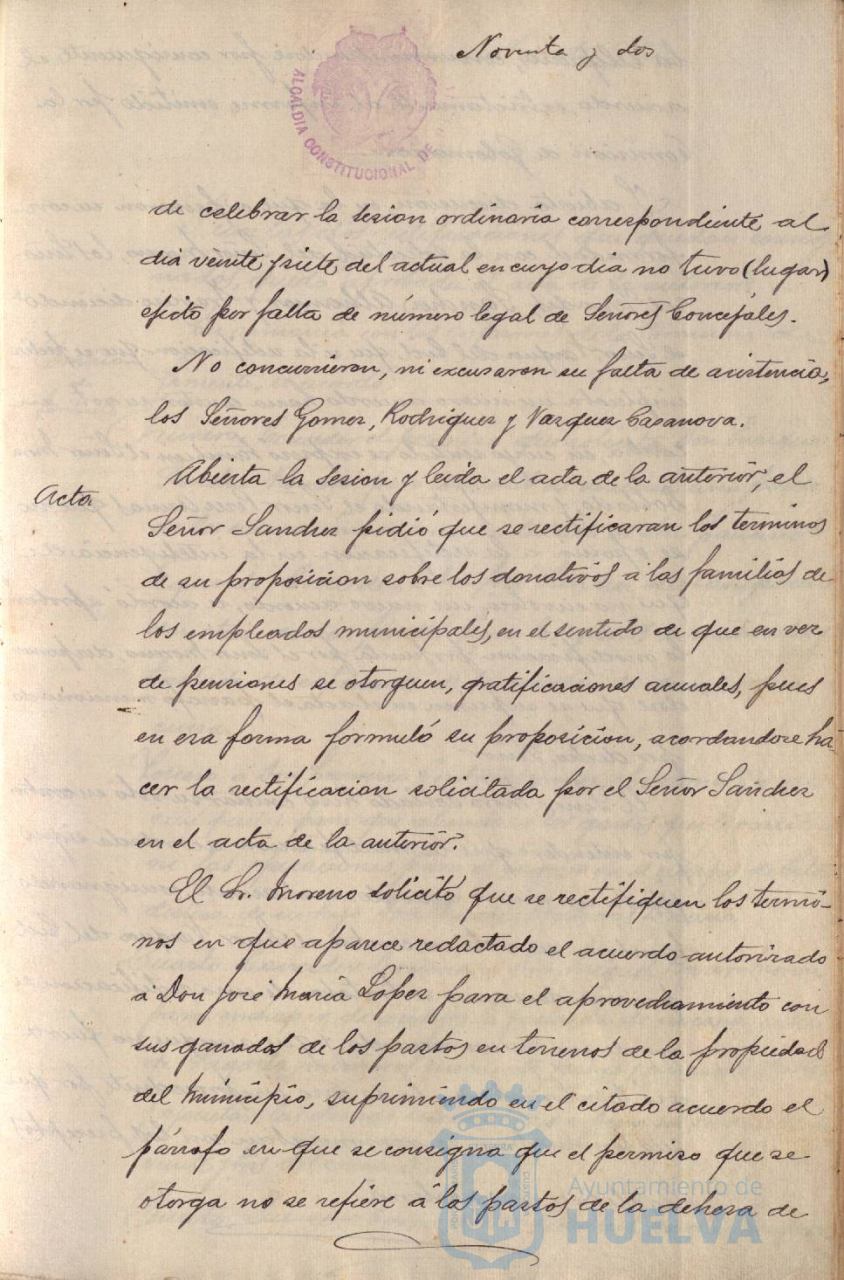 Noventa y dos
ALCALDIA CONSTITUCIONAL DE
de celebrar la sesion ordinaria correspondiente al
dia veinte y siete del actual en cuyo dia no tuvo (lugar)
efecto por falta de número legal de Señores Concejales.
No concurrieron, ni excusaron su falta de asistencia,
los Señores Gomez, Rodriguez y Vazquez Casanova.
Acta
Abierta la sesion y leida el acta de la anterior, el
Señor Sanchez pidió que se rectificaran los terminos
de su proposicion sobre los donativos á las familias de
los empleados municipales, en el sentido de que en vez
de pensiones se otorguen, gratificaciones anuales, pues
en esa forma formuló su proposicion, acordandose ha-
cer la rectificacion solicitada por el Señor Sanchez
en el acta de la anterior.
El Sr. Moreno solicitó que se rectifiquen los térmi-
nos en que aparece redactado el acuerdo autorizado
á Don José María López para el aprovechamiento con
sus ganados de los pastos en terrenos de la propiedad
del Municipio, suprimiendo en el citado acuerdo el
párrafo en que se consigna que el permiso que se
otorga no se refiere á los pastos de la dehesa de
Ayuntamiento de
HUELVA